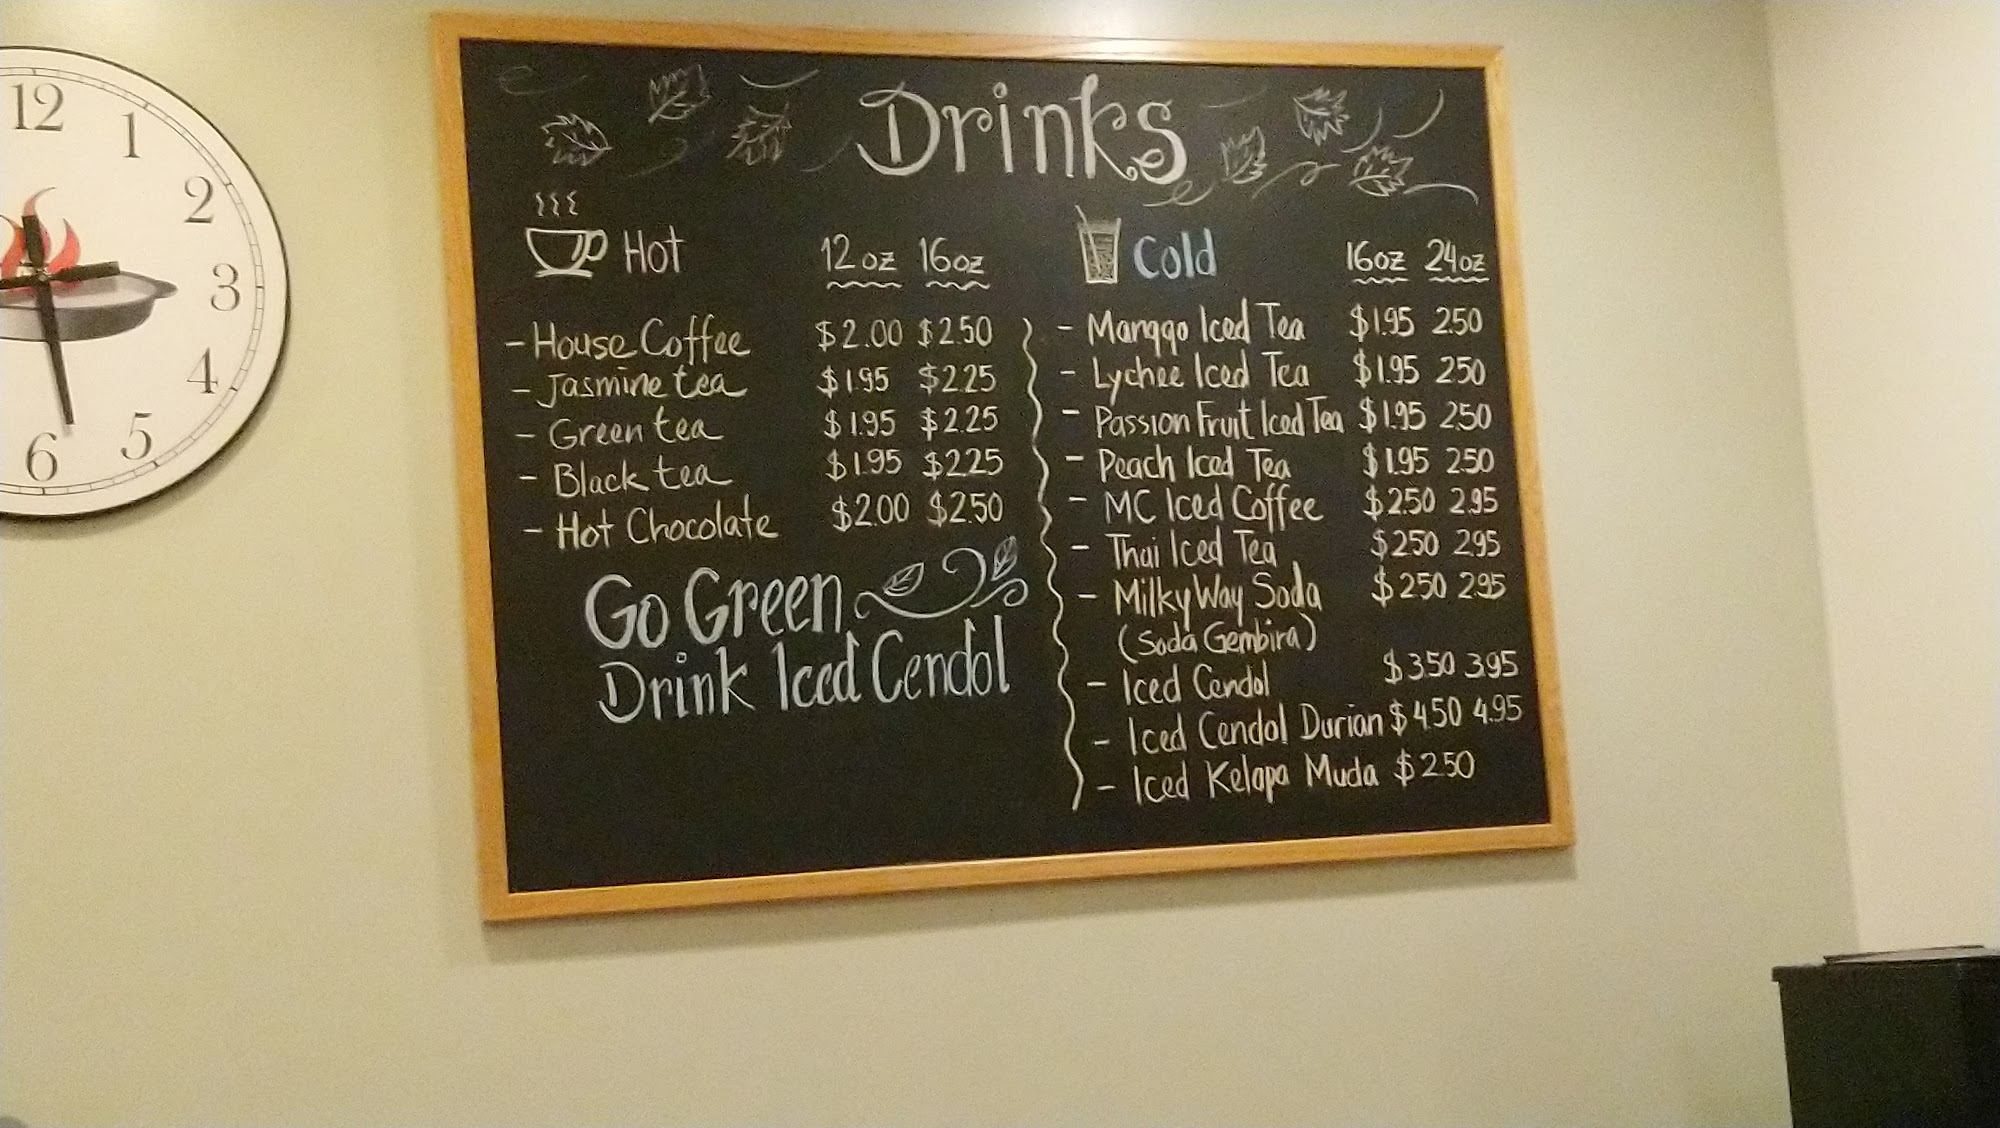 12
1
2
3
4
5
6
Drinks
Hot 12 oz 16oz
- House Coffee $2.00 $2.50
- Jasmine tea $1.95 $2.25
- Green tea $1.95 $2.25
- Black tea $1.95 $2.25
- Hot Chocolate $2.00 $2.50
Go Green
Drink Iced Cendol
Cold 16oz 24oz
- Manggo Iced Tea $1.95 2.50
- Lychee Iced Tea $1.95 2.50
- Passion Fruit Iced Tea $1.95 2.50
- Peach Iced Tea $1.95 2.50
- MC Iced Coffee $2.50 2.95
- Thai Iced Tea $2.50 2.95
- Milky Way Soda $2.50 2.95
(Soda Gembira)
- Iced Cendol $3.50 3.95
- Iced Cendol Durian $4.50 4.95
- Iced Kelapa Muda $2.50